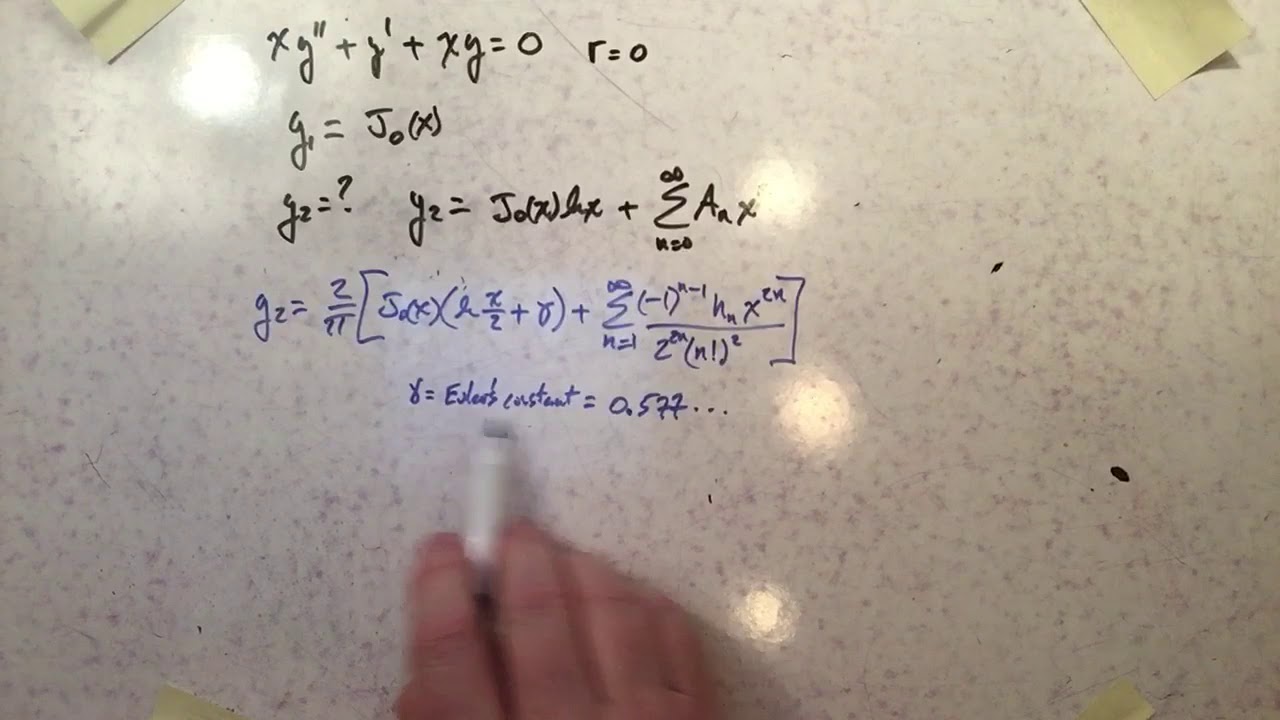 xy'' + y' + xy = 0 r = 0
y₁ = J₀(x)
y₂ = ? y₂ = J₀(x) ln x + ∑_{n=0}^{∞} Aₙ x
y₂ = 2/π [ J₀(x) (ln x/2 + γ) + ∑_{n=1}^{∞} (-1)^{n-1} hₙ x^{2n} / 2^{2n} (n!)² ]
γ = Euler's constant = 0.577...